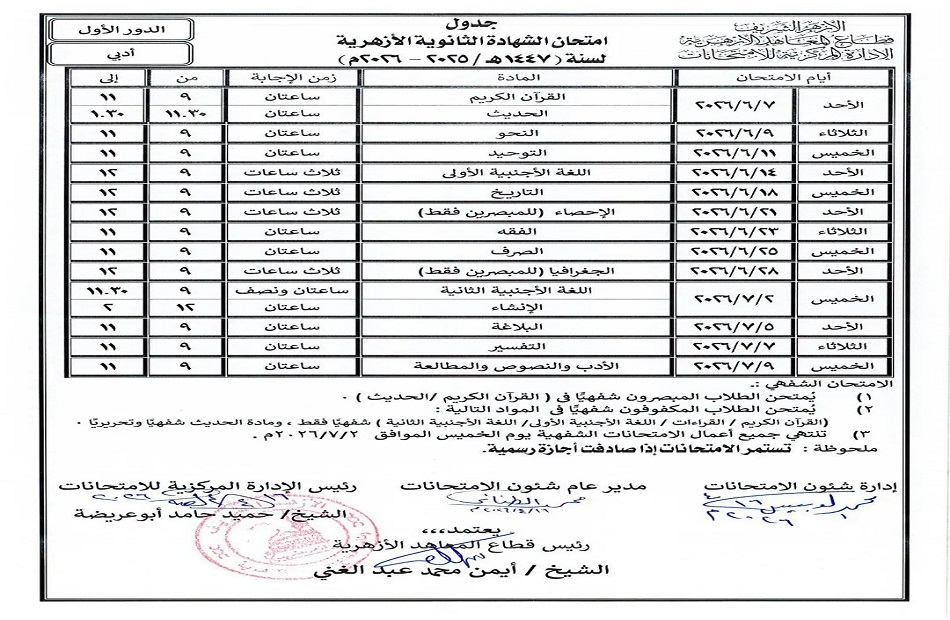 الأزهر الشريف
قطاع المعاهد الأزهرية
الإدارة المركزية للامتحانات
جدول
امتحان الشهادة الثانوية الأزهرية
لسنة (١٤٤٧هـ / ٢٠٢٥ - ٢٠٢٦م)
الدور الأول
أدبي
أيام الامتحان المادة زمن الإجابة من إلى
الأحد ٢٠٢٦/٦/٧ القرآن الكريم ساعتان ٩ ١١
الحديث ساعتان ١١.٣٠ ١.٣٠
الثلاثاء ٢٠٢٦/٦/٩ النحو ساعتان ٩ ١١
الخميس ٢٠٢٦/٦/١١ التوحيد ساعتان ٩ ١١
الأحد ٢٠٢٦/٦/١٤ اللغة الأجنبية الأولى ثلاث ساعات ٩ ١٢
الخميس ٢٠٢٦/٦/١٨ التاريخ ثلاث ساعات ٩ ١٢
الأحد ٢٠٢٦/٦/٢١ الإحصاء (للمبصرين فقط) ثلاث ساعات ٩ ١٢
الثلاثاء ٢٠٢٦/٦/٢٣ الفقه ساعتان ٩ ١١
الخميس ٢٠٢٦/٦/٢٥ الصرف ساعتان ٩ ١١
الأحد ٢٠٢٦/٦/٢٨ الجغرافيا (للمبصرين فقط) ثلاث ساعات ٩ ١٢
الخميس ٢٠٢٦/٧/٢ اللغة الأجنبية الثانية ساعتان ونصف ٩ ١١.٣٠
الإنشاء ساعتان ١٢ ٢
الأحد ٢٠٢٦/٧/٥ البلاغة ساعتان ٩ ١١
الثلاثاء ٢٠٢٦/٧/٧ التفسير ساعتان ٩ ١١
الخميس ٢٠٢٦/٧/٩ الأدب والنصوص والمطالعة ساعتان ٩ ١١
الامتحان الشفهي :.
١) يُمتحن الطلاب المبصرون شفهيًا فى ( القرآن الكريم /الحديث ) ٠
٢) يُمتحن الطلاب المكفوفون شفهيًا فى المواد التالية :
(القرآن الكريم / القراءات / اللغة الأجنبية الأولى/ اللغة الأجنبية الثانية ) شفهيًا فقط ، ومادة الحديث شفهيًا وتحريريًا ٠
٣) تنتهي جميع أعمال الامتحانات الشفهية يوم الخميس الموافق ٢٠٢٦/٧/٢م .
ملحوظة : تستمر الامتحانات إذا صادفت أجازة رسمية.
إدارة شئون الامتحانات
مدير عام شئون الامتحانات
رئيس الإدارة المركزية للامتحانات
الشيخ/ حميد حامد أبوعريضة
يعتمد،،،،
رئيس قطاع المعاهد الأزهرية
الشيخ / أيمن محمد عبد الغني